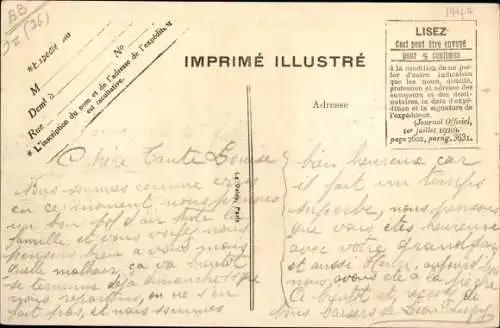 BB
IZ (26)
1944
*Expédié
M
Nº
Demt à
Rue
*L'inscription du nom et de l'adresse de l'expéditeur
est facultative.
IMPRIMÉ ILLUSTRÉ
Adresse
LISEZ
Ceci peut être envoyé
pour 5 centimes
à la condition de ne porter
d'autre indication
que les nom, qualité,
profession et adresse des
envoyeurs et des destinataires,
la date d'expédition
et la signature de
l'expéditeur.
(Journal Officiel,
1er juillet 1920)
page 2662, parag. 3631.
Chère Tante Louise
nous sommes comme vous
en ce moment nous prenons
un bon bol d'air
famille, et vous voyez nous
pensons bien a vous mais
quelle malheur, ça va bientôt
se terminé déja dimanche
nous repartirons, on ne s'en
fait pas, et nous sommes
bien heureux car
il fait un temps
superbe, nous pensons
que vous êtes heureuse
avec votre grand
et aussi aujourd'hui
nous avons été a la pêche
A bientôt
bons baisers de Léon